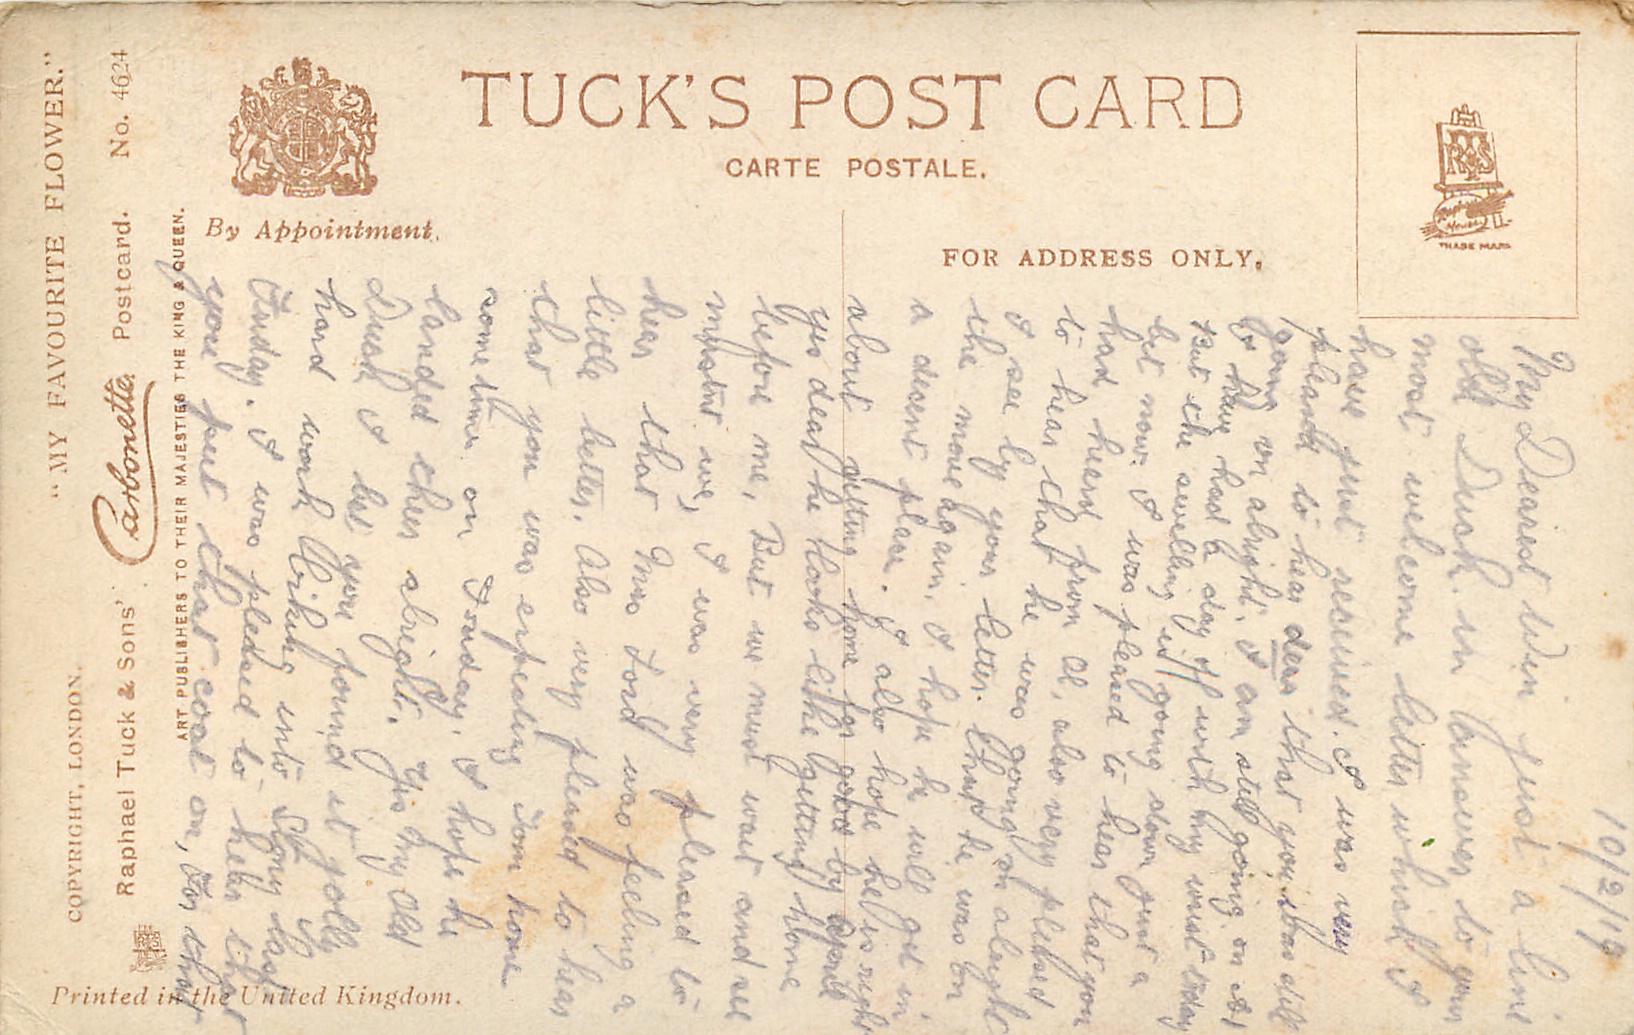 "MY FAVOURITE FLOWER."
No. 4624
COPYRIGHT, LONDON.
Raphael Tuck & Sons' Carbonette Postcard.
ART PUBLISHERS TO THEIR MAJESTIES THE KING & QUEEN.
By Appointment.
TUCK'S POST CARD
CARTE POSTALE.
FOR ADDRESS ONLY.
RTS
Raphael House
TRADE MARK
Printed in the United Kingdom.
10/2/19
My Dearest Win just a line
old Dush in answer to your
most welcome letter which I
have just received. I was very
pleased to hear dear that you was still
going on alright. I am still going on A1
I have had a day off with my wrist today
But the swelling is going down just a
bit now. I was pleased to hear that you
had heard from Al, also very pleased
to hear that he was going on alright
I see by your letter. that he was on
the move again. I hope he will get in
a decent place. I also hope he is right
about getting home for good by April
yes dear he looks like getting home
before me, But we must wait and see
mustnt we, I was very pleased to
hear that Miss Ford was feeling a
little better. Also very pleased to hear
that you was expecting Tom home
some time on Tuesday. I hope he
landed there alright. Yes my old
Dush I bet you found it jolly
hard work Biking into Stony last
Friday. I was pleased to hear that
you put that coat on, for that